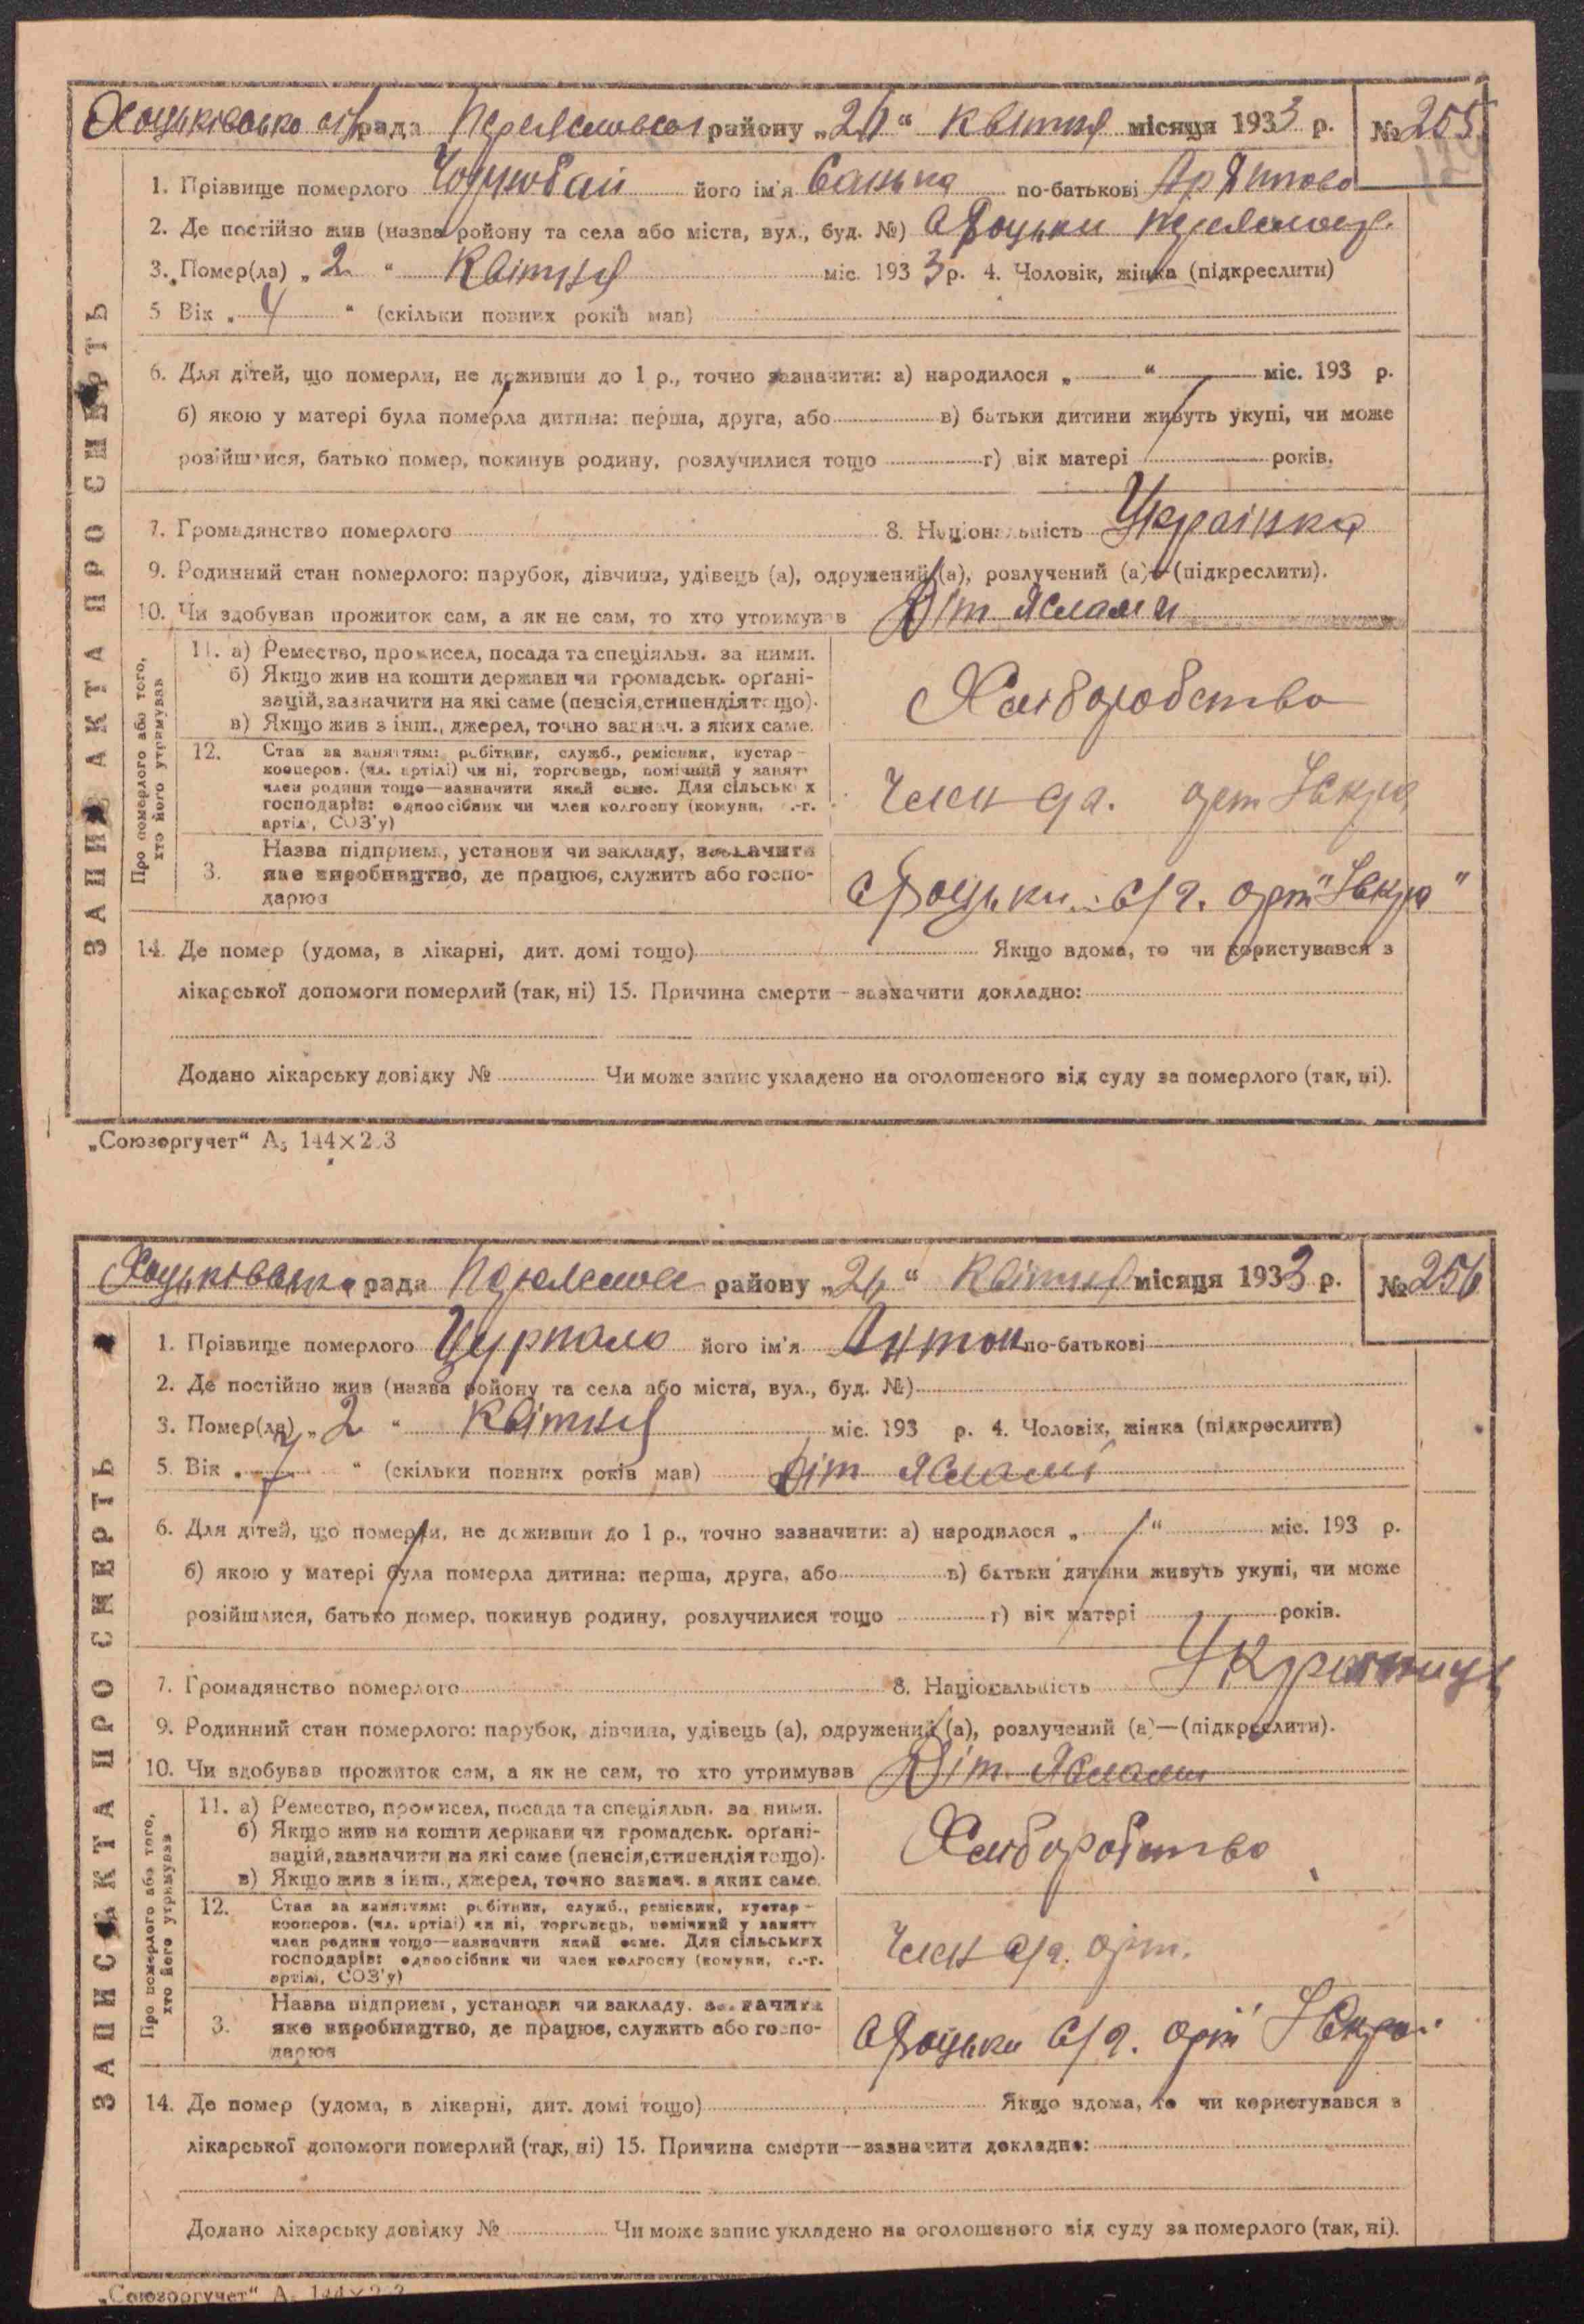 Хоцьківська с/рада Переяславськ району „26“ Квітня місяця 1933 р. № 255
1. Прізвище померлого його ім'я Санька по-батькові
2. Де постійно жив (назва ройону та села або міста, вул., буд. №) с Хоцьки
3. Помер(ла) „2“ Квітня міс. 1933 р. 4. Чоловік, жінка (підкреслити)
5 Вік „4“ (скільки повних років мав)
6. Для дітей, що померли, не доживши до 1 р., точно зазначити: а) народилося „ “ міс. 193 р.
б) якою у матері була померла дитина: перша, друга, або в) батьки дитини живуть укупі, чи може
розійшлися, батько помер, покинув родину, розлучилися тощо г) вік матері років.
7. Громадянство померлого 8. Національність Українка
9. Родинний стан померлого: парубок, дівчина, удівець (а), одружений (а), розлучений (а)—(підкреслити).
10. Чи здобував прожиток сам, а як не сам, то хто утримував Діт. Яслами
11. а) Ремество, промисел, посада та спеціяльн. за ними.
б) Якщо жив на кошти держави чи громадськ. органі-
зацій, зазначити на які саме (пенсія, стипендія тощо).
в) Якщо жив з інш., джерел, точно зазнач. з яких саме.
Хліборобство
12. Стан за заняттям: робітник, служб., ремісник, кустар—
кооперов. (чл. артілі) чи ні, торговець, помічний у занятт
член родини тощо—зазначити який саме. Для сільських
господарів: одноосібник чи член колгоспу (комуни, с.-г.
артіл, СОЗ'у)
Член с/г. арт Іскра
3. Назва підприєм., установи чи закладу, зазначити
яке виробництво, де працює, служить або госпо-
дарює
с Хоцьки с/г. арт "Іскра"
14. Де помер (удома, в лікарні, дит. домі тощо) Якщо вдома, то чи користувався з
лікарської допомоги померлий (так, ні) 15. Причина смерти—зазначити докладно:
Додано лікарську довідку № Чи може запис укладено на оголошеного від суду за померлого (так, ні).
ЗАПИС АКТА ПРО СМЕРТЬ
Про померлого або того,
хто його утримував
„Союзоргучет“ А5 144×2 3
Хоцьківська рада району „26“ Квітня місяця 1933 р. № 256
1. Прізвище померлого Цурпало його ім'я Антон по-батькові
2. Де постійно жив (назва ройону та села або міста, вул., буд. №)
3. Помер(ла) „2“ Квітня міс. 193 р. 4. Чоловік, жінка (підкреслити)
5. Вік „ “ (скільки повних років мав) Діт Яслами
6. Для дітей, що померли, не доживши до 1 р., точно зазначити: а) народилося „ “ міс. 193 р.
б) якою у матері була померла дитина: перша, друга, або в) батьки дитини живуть укупі, чи може
розійшлися, батько помер, покинув родину, розлучилися тощо г) вік матері років.
7. Громадянство померлого 8. Національність
9. Родинний стан померлого: парубок, дівчина, удівець (а), одружений (а), розлучений (а)—(підкреслити).
10. Чи здобував прожиток сам, а як не сам, то хто утримував Діт. Яслами
11. а) Ремество, промисел, посада та спеціяльн. за ними.
б) Якщо жив на кошти держави чи громадськ. органі-
зацій, зазначити на які саме (пенсія, стипендія тощо).
в) Якщо жив з інш., джерел, точно зазнач. з яких саме.
Хліборобство
12. Стан за заняттям: робітник, служб., ремісник, кустар—
кооперов. (чл. артілі) чи ні, торговець, помічний у занятт
член родини тощо—зазначити який саме. Для сільських
господарів: одноосібник чи член колгоспу (комуни, с.-г.
артіл, СОЗ'у)
Член с/г. арт.
3. Назва підприєм., установи чи закладу. зазначити
яке виробництво, де працює, служить або госпо-
дарює
с Хоцьки с/г. арт Іскра
14. Де помер (удома, в лікарні, дит. домі тощо) Якщо вдома, то чи користувався з
лікарської допомоги померлий (так, ні) 15. Причина смерти—зазначити докладно:
Додано лікарську довідку № Чи може запис укладено на оголошеного від суду за померлого (так, ні).
ЗАПИС АКТА ПРО СМЕРТЬ
Про померлого або того,
хто його утримував
„Союзоргучет“ А5 144×2 3